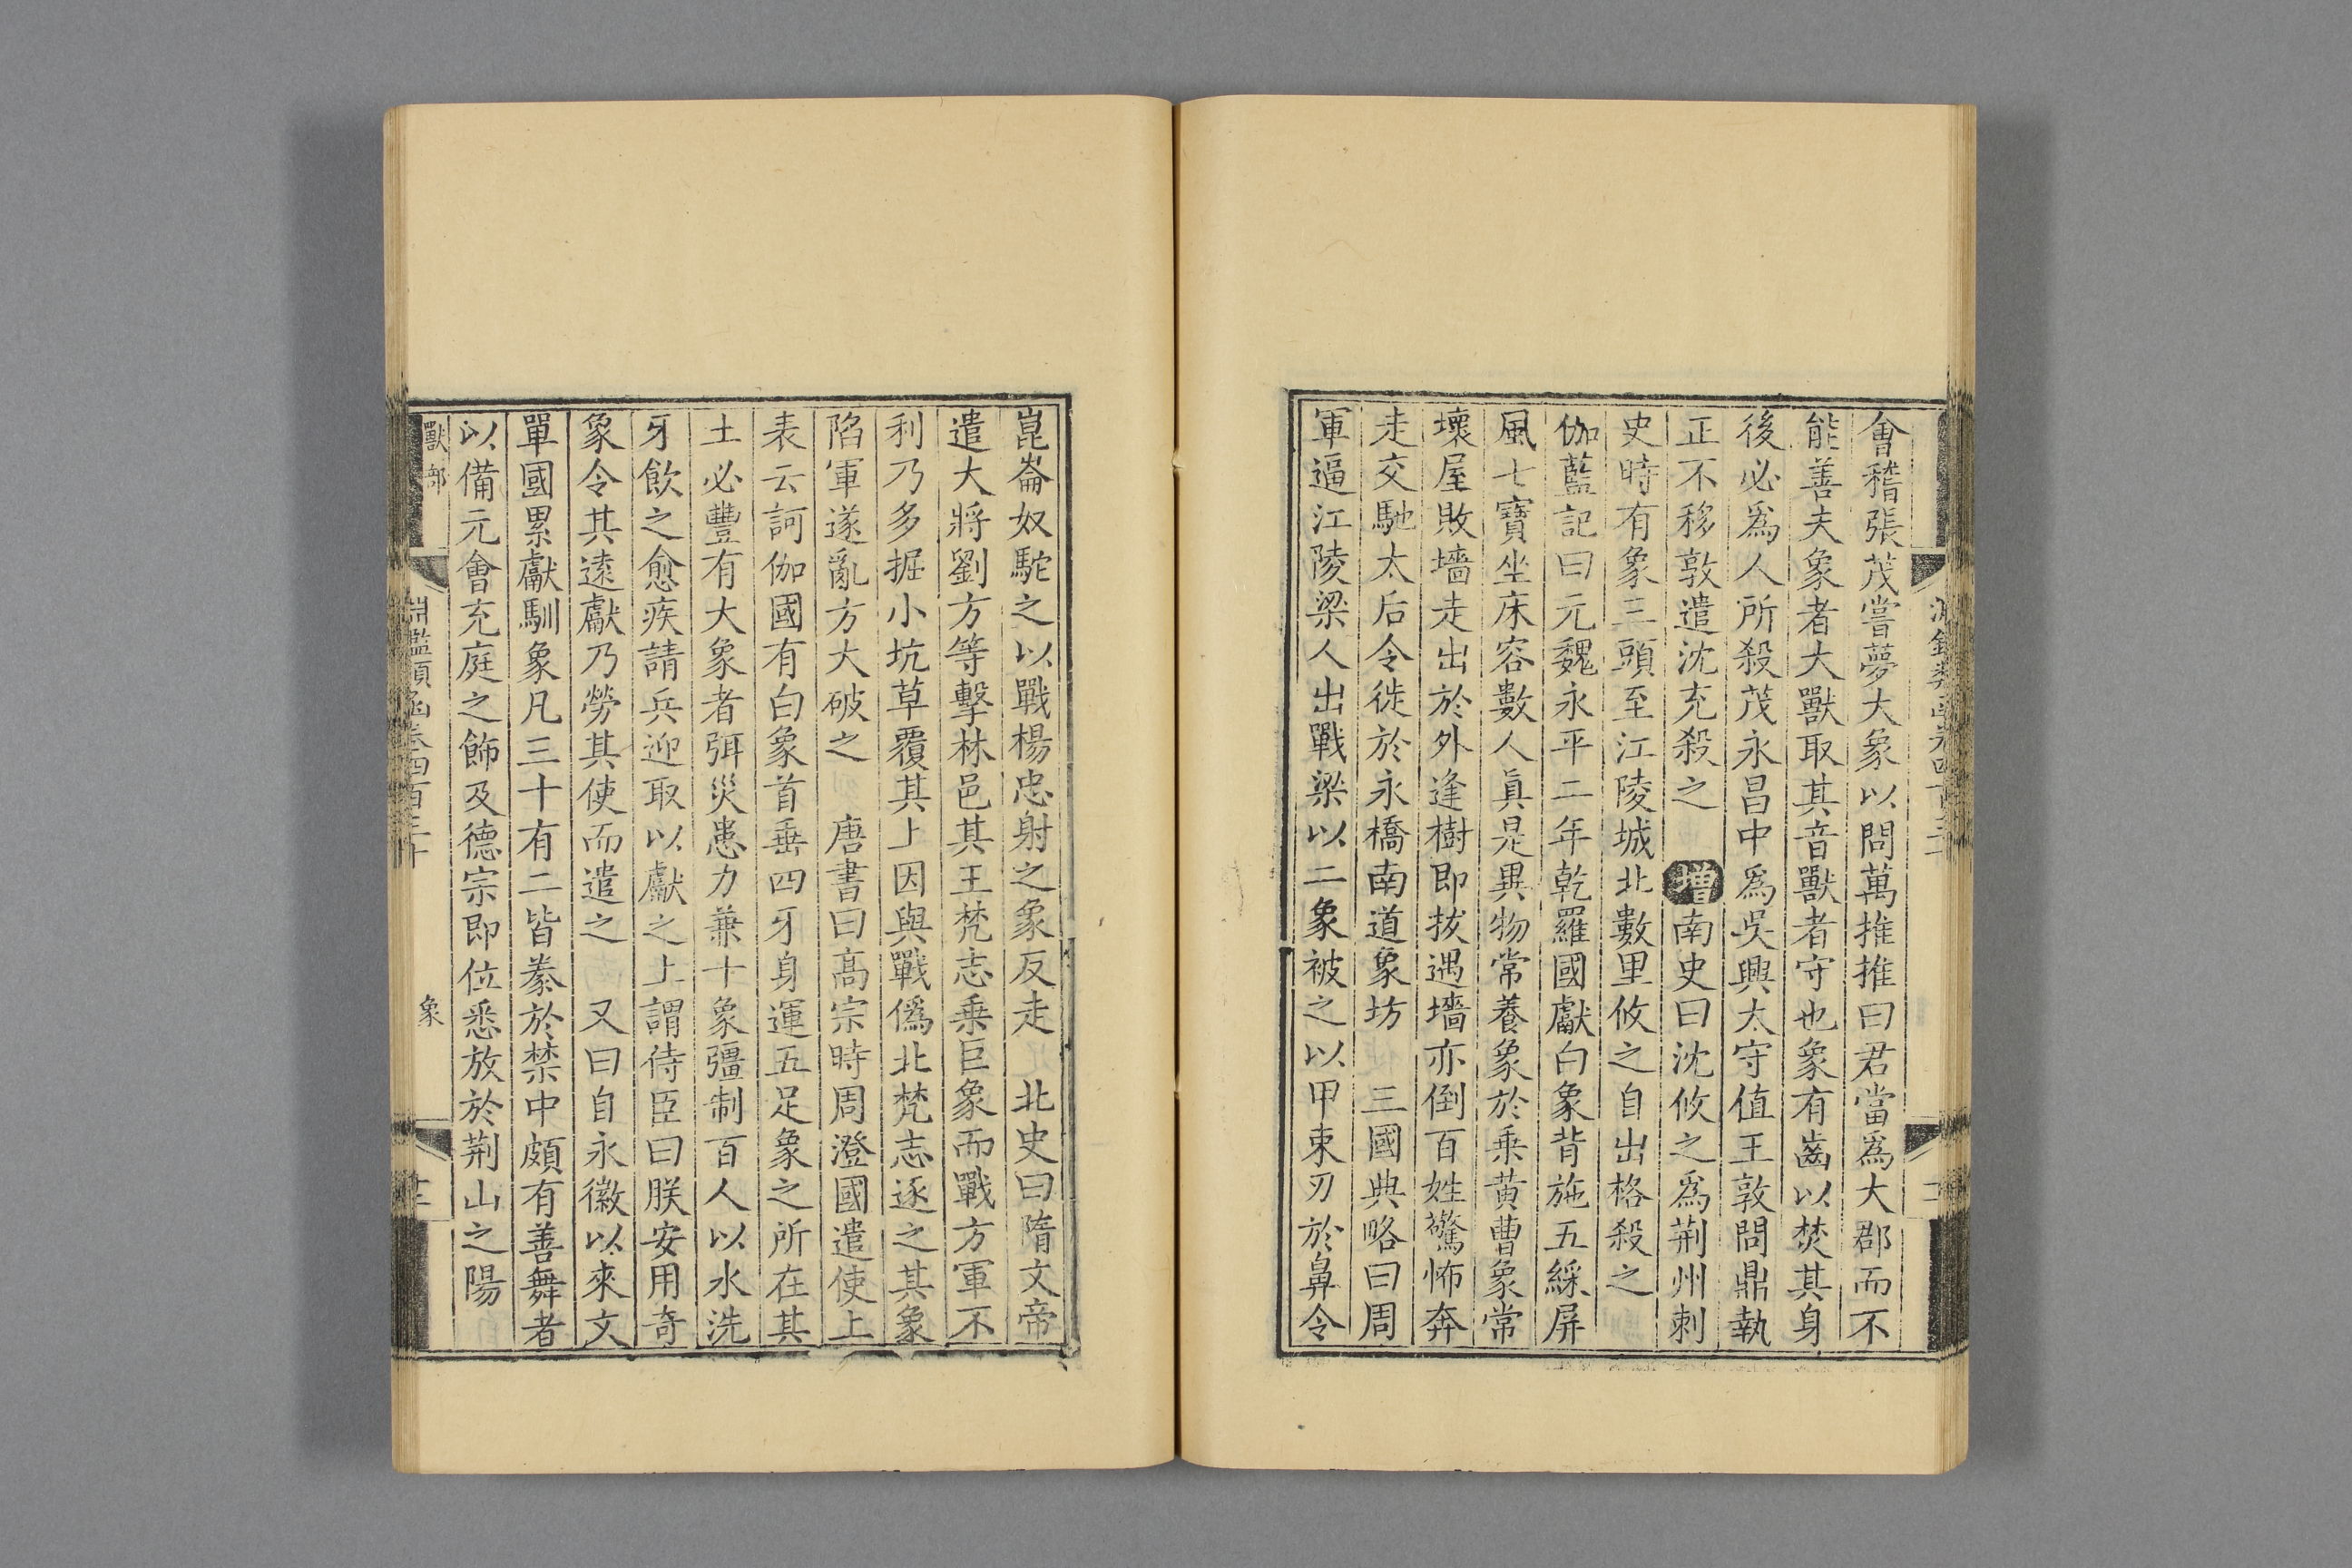 會稽張茂嘗夢大象以問萬推推曰君當爲大郡而不
能善夫象者大獸取其音獸者守也象有齒以焚其身
後必爲人所殺茂永昌中爲吳興太守值王敦問鼎執
正不移敦遣沈充殺之 增南史曰沈攸之爲荆州刺
史時有象三頭至江陵城北數里攸之自出格殺之
伽藍記曰元魏永平二年乾羅國獻白象背施五綵屏
風七寶坐床容數人眞是異物常養象於乗黄曹象常
壞屋敗墻走出於外逢樹即拔遇墻亦倒百姓驚怖奔
走交馳太后令徙於永橋南道象坊 三國典略曰周
軍逼江陵梁人出戰梁以二象被之以甲束刃於鼻令
崑崙奴駝之以戰楊忠射之象反走 北史曰隋文帝
遣大將劉方等擊林邑其王梵志乗巨象而戰方軍不
利乃多掘小坑草覆其上因與戰僞北梵志逐之其象
陷軍遂亂方大破之 唐書曰髙宗時周澄國遣使上
表云訶伽國有白象首垂四牙身運五足象之所在其
土必豐有大象者弭災患力兼十象彊制百人以水洗
牙飲之愈疾請兵迎取以獻之上謂侍臣曰朕安用奇
象令其遠獻乃勞其使而遣之 又曰自永徽以來文
單國累獻馴象凡三十有二皆豢於禁中頗有善舞者
以備元會充庭之飾及德宗即位悉放於荆山之陽
獸部
淵鑑類函卷四百三十
象